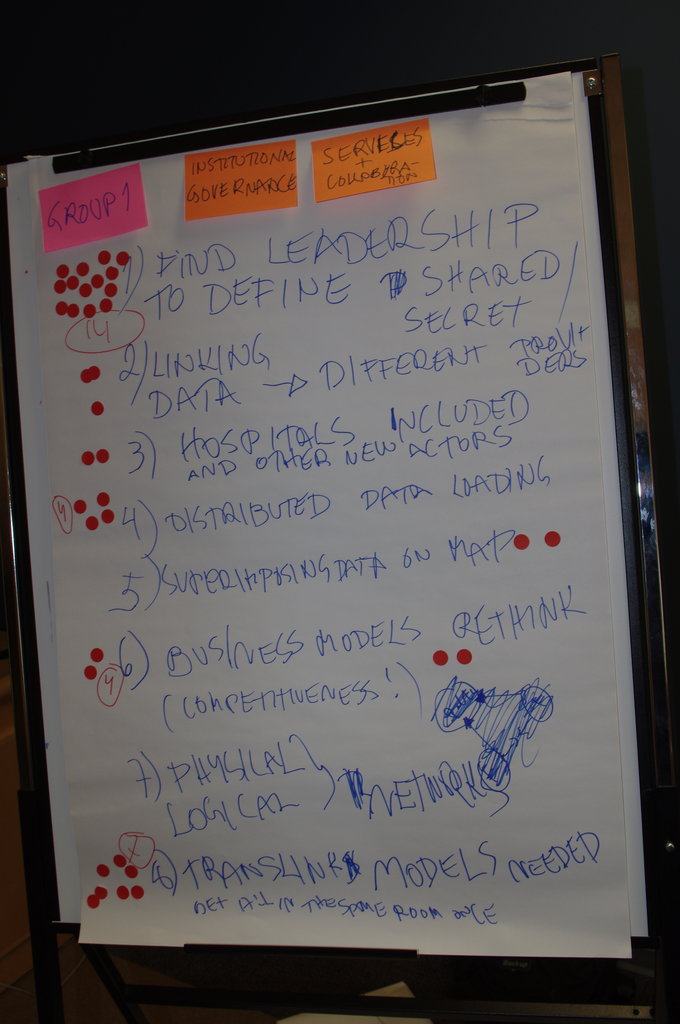 GROUP 1
INSTITUTIONAL
GOVERNANCE
SERVICES
+
COLLABORA-
TION
1) FIND LEADERSHIP
TO DEFINE SHARED/
SECRET
14
2) LINKING
DATA → DIFFERENT PROVI
DERS
3) HOSPITALS INCLUDED
AND OTHER NEW ACTORS
4 4) DISTRIBUTED DATA LOADING
5) SUPERIMPOSING DATA ON MAP
6) BUSINESS MODELS RETHINK
4 (COMPETITIVENESS!)
7) PHYSICAL
LOGICAL } NETWORKS
7
8) TRANSLINK MODELS NEEDED
GET ALL IN THE SAME ROOM ONCE